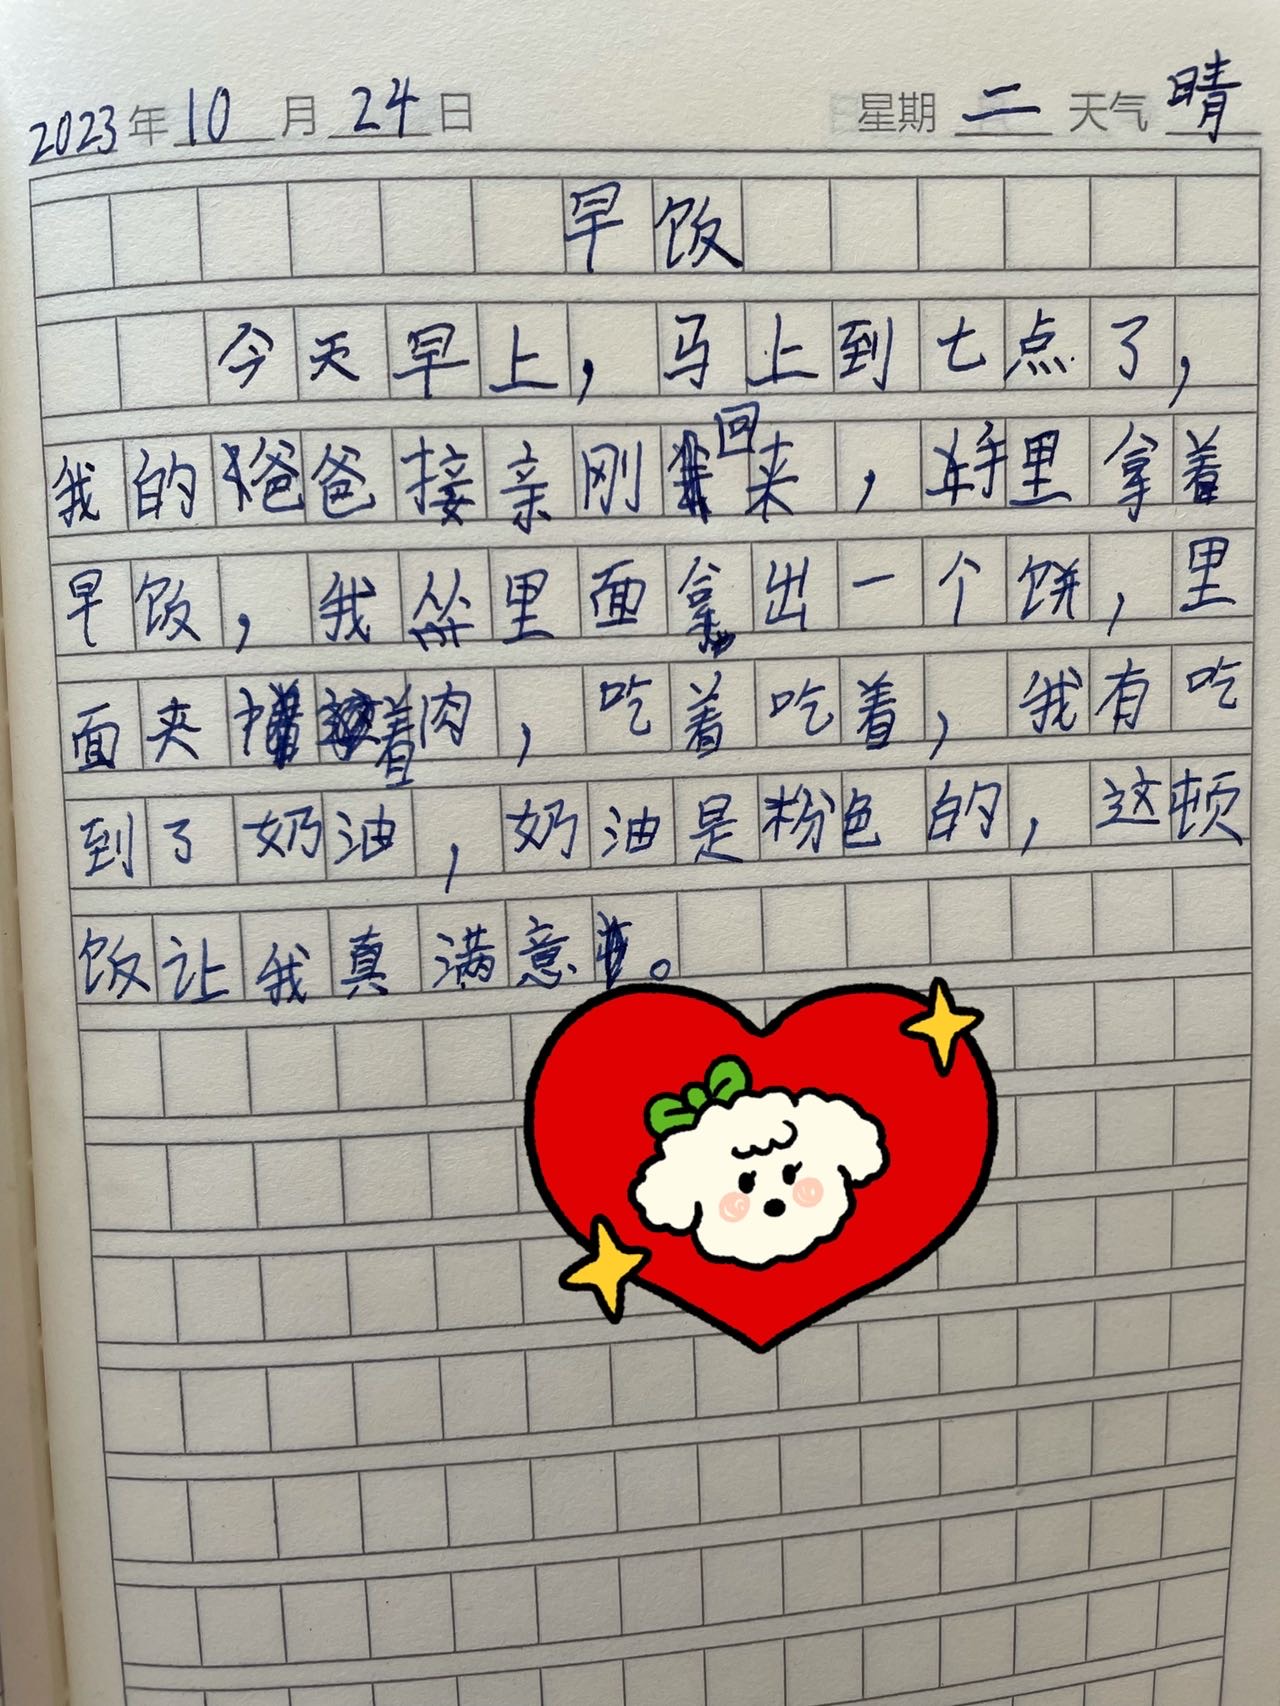 2023年10月24日 星期二 天气晴
早饭
今天早上，马上到七点了，
我的爸爸接亲刚回来，手里拿着
早饭，我从里面拿出一个饼，里
面夹着肉，吃着吃着，我有吃
到了奶油，奶油是粉色的，这顿
饭让我真满意。